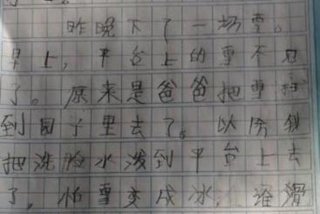 昨晚下了一场雪。
早上，平台上的雪不见
了。原来是爸爸把雪
到园子里去了。以防我
把洗脸水泼到平台上去
了，怕雪变成冰，谁滑